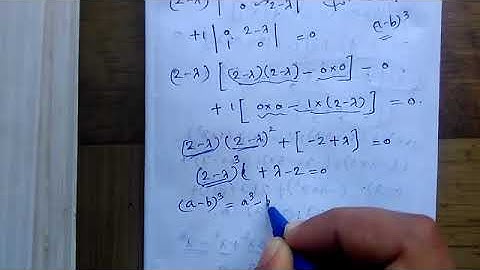 (2-λ) | 0 2-λ |
(a-b)³
+1 | 0 2-λ | = 0
1 0
(2-λ) [ (2-λ)(2-λ) - 0×0 ] - 0
+ 1 [ 0×0 - 1×(2-λ) ] = 0.
(2-λ) (2-λ)² + [-2+λ] = 0
(2-λ)³ + λ-2=0
(a-b)³ = a³-b